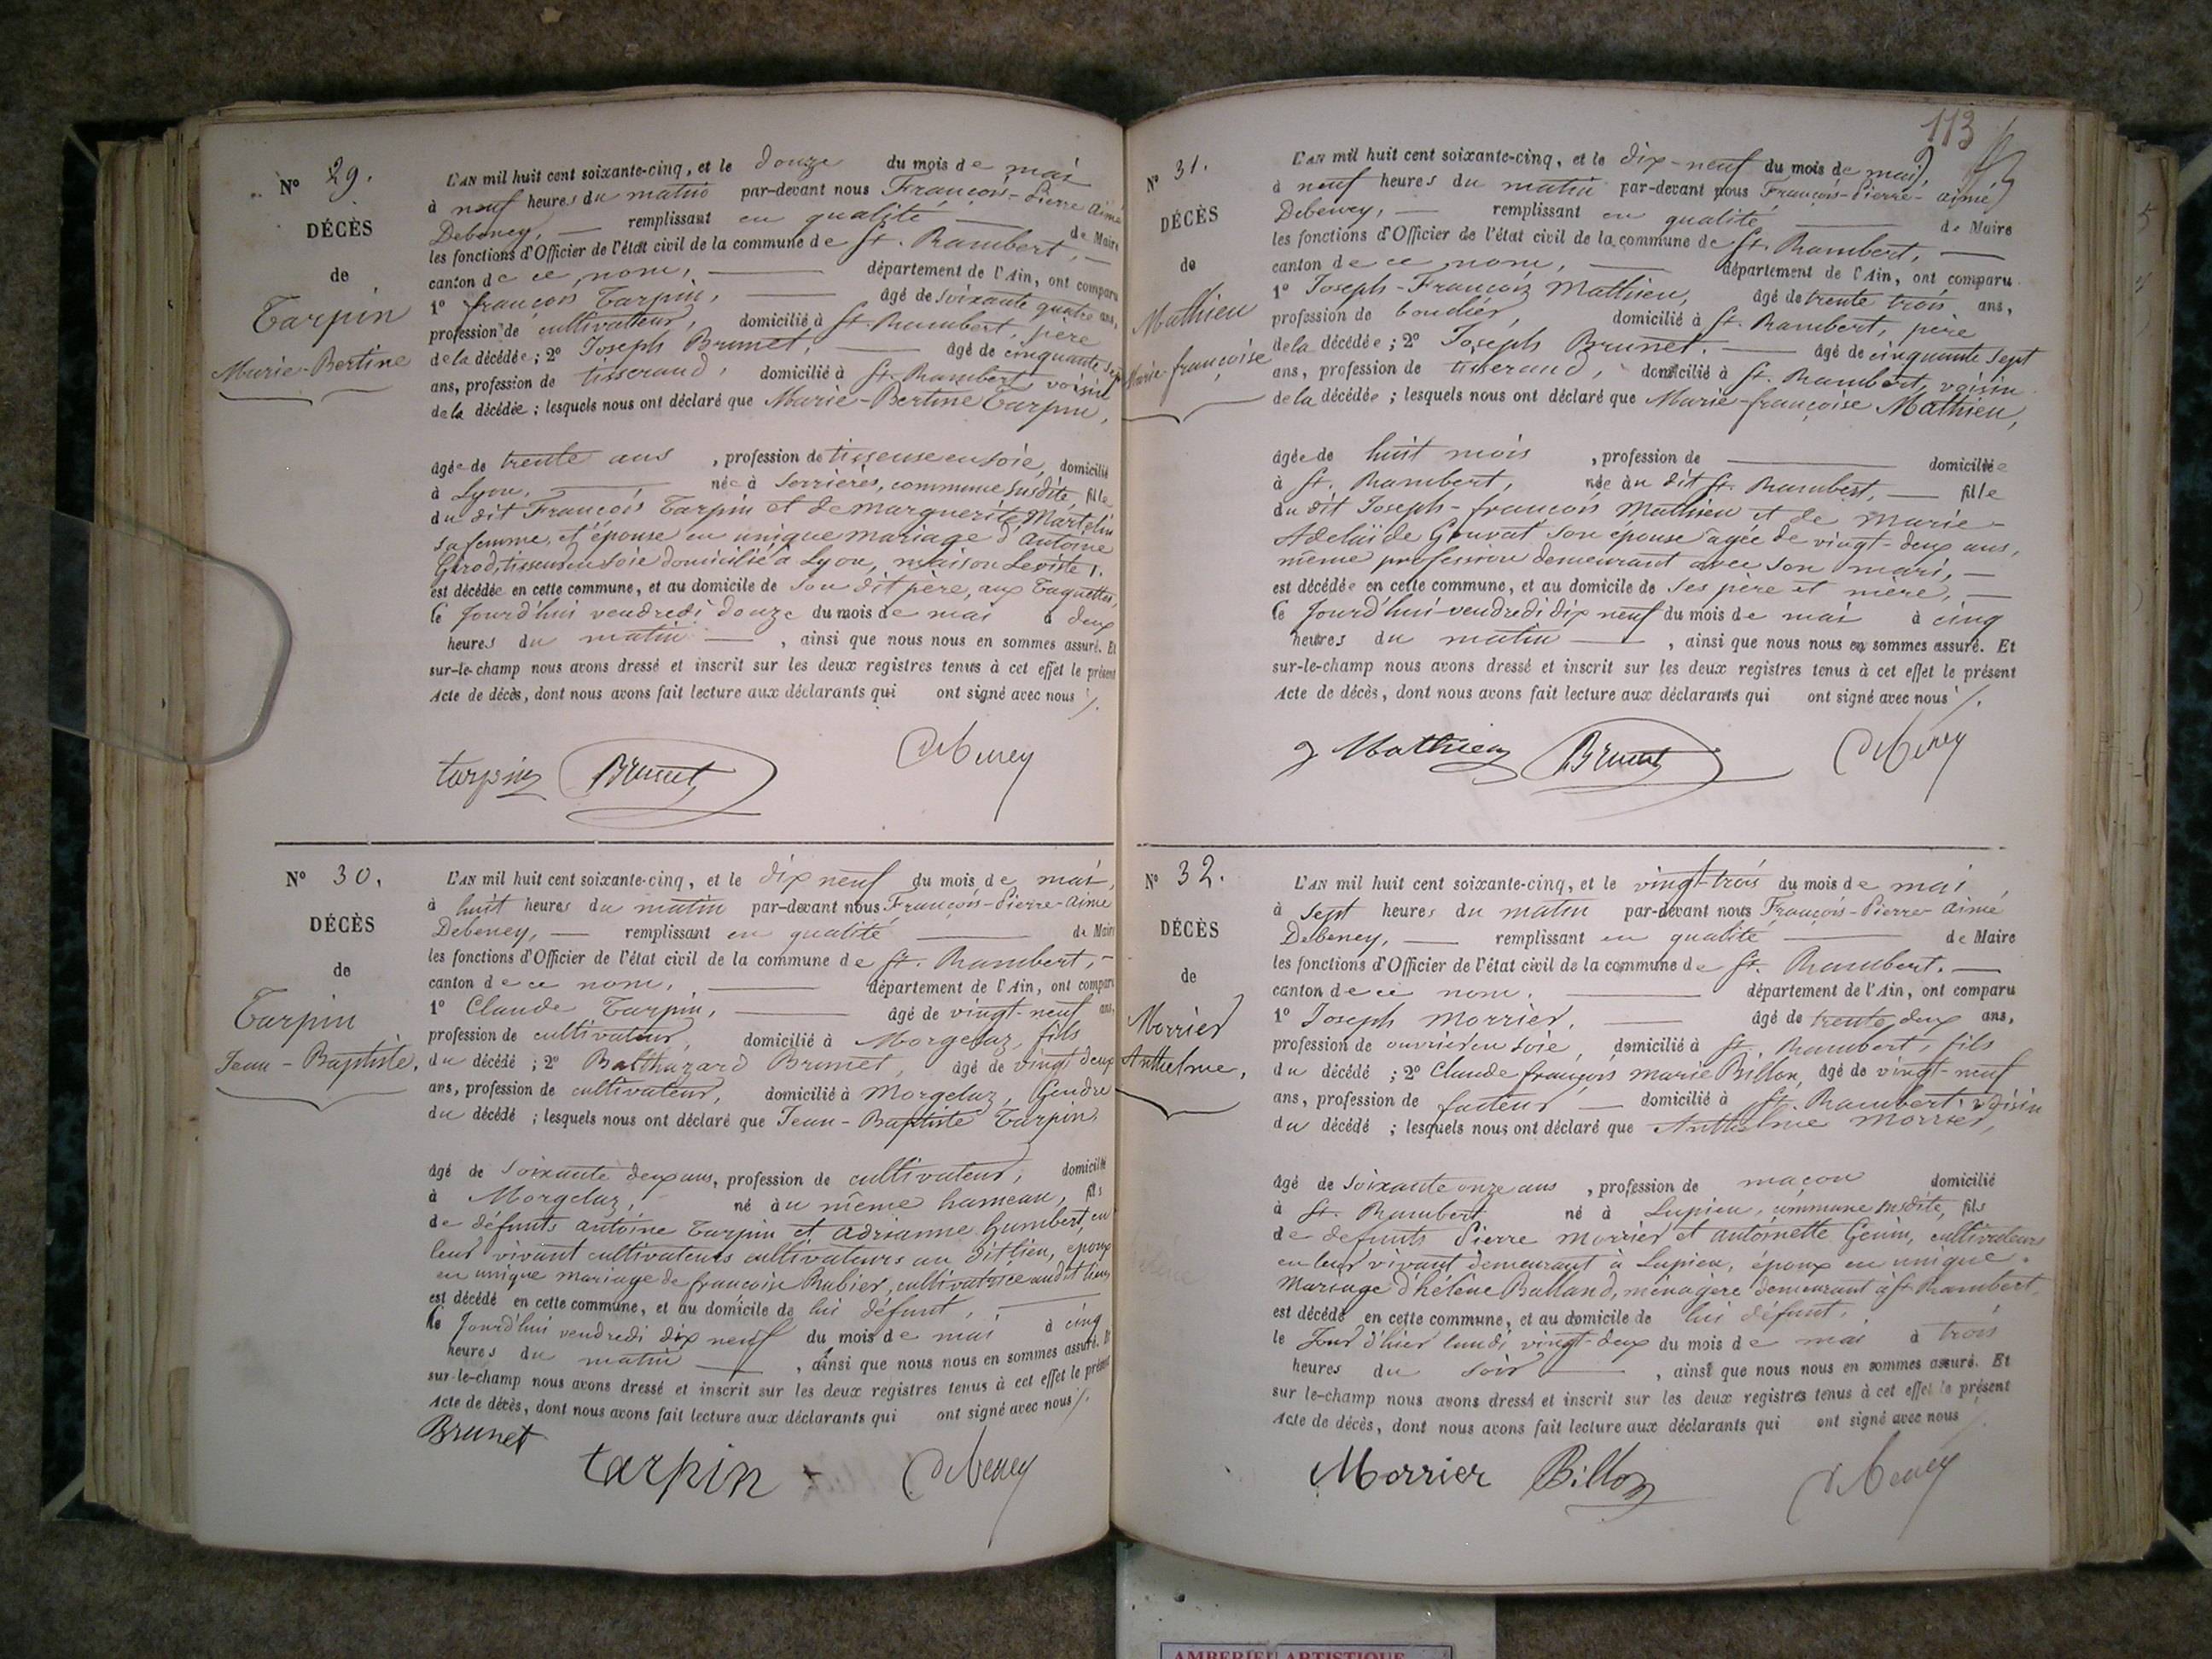 N° 29.
DÉCÈS
de
Tarpin
Marie-Bertine
L'AN mil huit cent soixante-cinq, et le douze du mois de mai
à neuf heures du matin par-devant nous François-Pierre Aimé
Debeney, — remplissant en qualité — de Maire
les fonctions d'Officier de l'état civil de la commune de St. Rambert, —
canton de ce nom, — département de l'Ain, ont comparu
1° françois Tarpin, — âgé de soixante quatre ans,
profession de cultivateur, domicilié à St. Rambert, père
de la décédée ; 2° Joseph Brunet, — âgé de cinquante sept
ans, profession de tisserand, domicilié à St. Rambert voisin
de la décédée ; lesquels nous ont déclaré que Marie-Bertine Tarpin,
âgée de trente ans, profession de tisseuse en soie, domicilié
à Lyon, — née à Serrières, commune susdite, fille
du dit François Tarpin et de marguerite Martelin
sa femme, et épouse en unique mariage d'Antoine
Girod, tisseur en soie domicilié à Lyon, maison Leviste 1.
est décédée en cette commune, et au domicile de son dit père, aux Taquettes,
le jourd'hui vendredi douze du mois de mai à deux
heures du matin —, ainsi que nous nous en sommes assuré. Et
sur-le-champ nous avons dressé et inscrit sur les deux registres tenus à cet effet le présent
Acte de décès, dont nous avons fait lecture aux déclarants qui ont signé avec nous /.
tarpin Brunet Debeney
N° 30.
DÉCÈS
de
Tarpin
Jean-Baptiste.
L'AN mil huit cent soixante-cinq, et le dix neuf du mois de mai,
à huit heures du matin par-devant nous François-Pierre-Aimé
Debeney, — remplissant en qualité — de Maire
les fonctions d'Officier de l'état civil de la commune de St. Rambert, —
canton de ce nom, — département de l'Ain, ont comparu
1° Claude Tarpin, — âgé de vingt-neuf ans,
profession de cultivateur, domicilié à Morgelaz, fils
du décédé ; 2° Balthazard Brunet, âgé de vingt deux
ans, profession de cultivateur, domicilié à Morgelaz, Gendre
du décédé ; lesquels nous ont déclaré que Jean-Baptiste Tarpin,
âgé de soixante deux ans, profession de cultivateur, domicilié
à Morgelaz, né au même hameau, fils
de défunts antoine Tarpin et Adrianne Humbert, en
leur vivant cultivateurs cultivateurs au dit lieu, époux
en unique mariage de françoise Rubier, cultivatrice audit lieu,
est décédé en cette commune, et au domicile de lui défunt, —
le jourd'hui vendredi dix neuf du mois de mai à cinq
heures du matin —, ainsi que nous nous en sommes assuré. Et
sur-le-champ nous avons dressé et inscrit sur les deux registres tenus à cet effet le présent
Acte de décès, dont nous avons fait lecture aux déclarants qui ont signé avec nous /.
Brunet
tarpin Debeney
113
N° 31.
DÉCÈS
de
Mathieu
Marie-françoise
L'AN mil huit cent soixante-cinq, et le dix-neuf du mois de mai,
à neuf heures du matin par-devant nous François-Pierre-aimé
Debeney, — remplissant en qualité — de Maire
les fonctions d'Officier de l'état civil de la commune de St. Rambert, —
canton de ce nom, — département de l'Ain, ont comparu
1° Joseph-François Mathieu, âgé de trente trois ans,
profession de boudier, domicilié à St. Rambert, père
de la décédée ; 2° Joseph Brunet. — âgé de cinquante sept
ans, profession de tisserand, domicilié à St. Rambert, voisin
de la décédée ; lesquels nous ont déclaré que Marie-françoise Mathieu,
âgée de huit mois, profession de — domiciliée
à St. Rambert, née au dit St. Rambert, — fille
du dit Joseph-françois Mathieu et de Marie-
Adelaïde Gouvat son épouse âgée de vingt-deux ans,
même profession demeurant avec son mari, —
est décédée en cette commune, et au domicile de ses père et mère, —
le jourd'hui vendredi dix neuf du mois de mai à cinq
heures du matin —, ainsi que nous nous en sommes assuré. Et
sur-le-champ nous avons dressé et inscrit sur les deux registres tenus à cet effet le présent
Acte de décès, dont nous avons fait lecture aux déclarants qui ont signé avec nous /.
J Mathieu Brunet Debeney
N° 32.
DÉCÈS
de
Morrier
Anthelme,
L'AN mil huit cent soixante-cinq, et le vingt-trois du mois de mai,
à sept heures du matin par-devant nous François-Pierre-aimé
Debeney, — remplissant en qualité — de Maire
les fonctions d'Officier de l'état civil de la commune de St. Rambert. —
canton de ce nom. — département de l'Ain, ont comparu
1° Joseph Morrier, — âgé de trente deux ans,
profession de ouvrier en soie, domicilié à St. Rambert, fils
du décédé ; 2° Claude françois marie Billon, âgé de vingt-neuf
ans, profession de facteur — domicilié à St. Rambert, voisin
du décédé ; lesquels nous ont déclaré que Anthelme Morrier,
âgé de soixante onze ans, profession de maçon domicilié
à St. Rambert né à Lupieu, commune susdite, fils
de defunts Pierre Morrier et antoinette Genin, cultivateurs
en leur vivant demeurant à Lupieu, époux en unique
Mariage d'hélène Balland, ménagère demeurant à St Rambert,
est décédé en cette commune, et au domicile de lui défunt,
le Jour d'hier lundi vingt-deux du mois de mai à trois
heures du soir —, ainsi que nous nous en sommes assuré. Et
sur le-champ nous avons dressé et inscrit sur les deux registres tenus à cet effet le présent
Acte de décès, dont nous avons fait lecture aux déclarants qui ont signé avec nous /.
Morrier Billon Debeney
AMBERIEU ARTISTIQUE